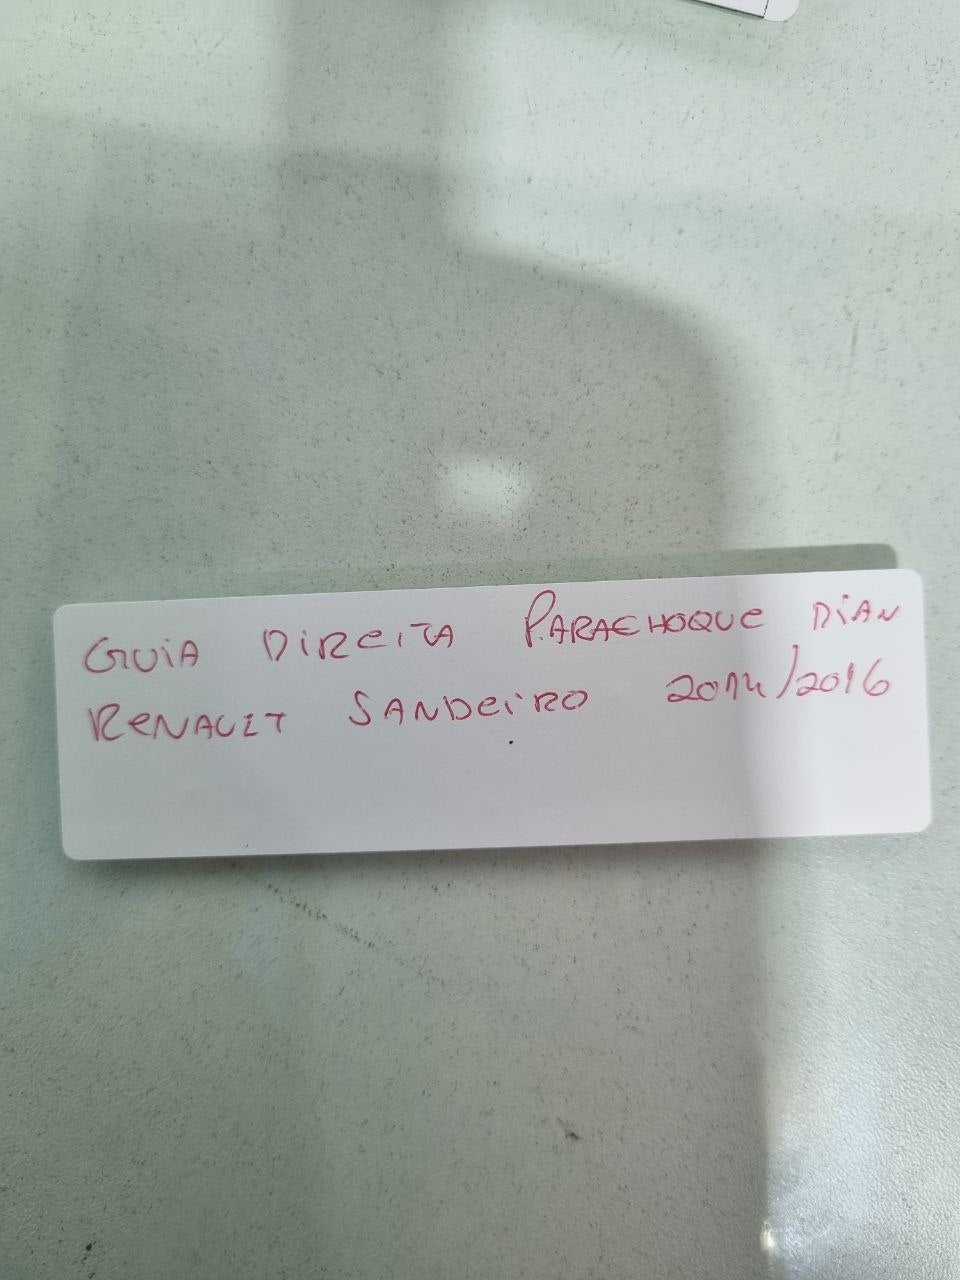 GUIA DIREITA PARACHOQUE DIAN
RENAULT SANDEIRO 2014/2016